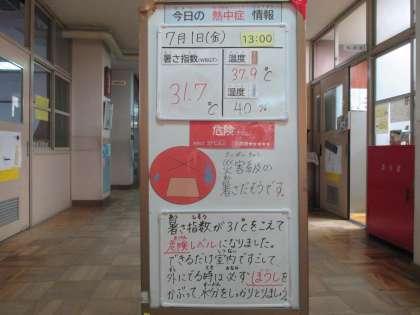 今日の 熱中症 情報
7月1日(金) 13:00
暑さ指数(WBGT)
31.7℃
温度
37.9℃
湿度
40%
危険
災害級の
暑さだそうです。
暑さ指数が31℃をこえて
危険レベルになりました。
できるだけ室内ですごして
外にでる時は必ずぼうしを
かぶって水分をしっかりとりましょう